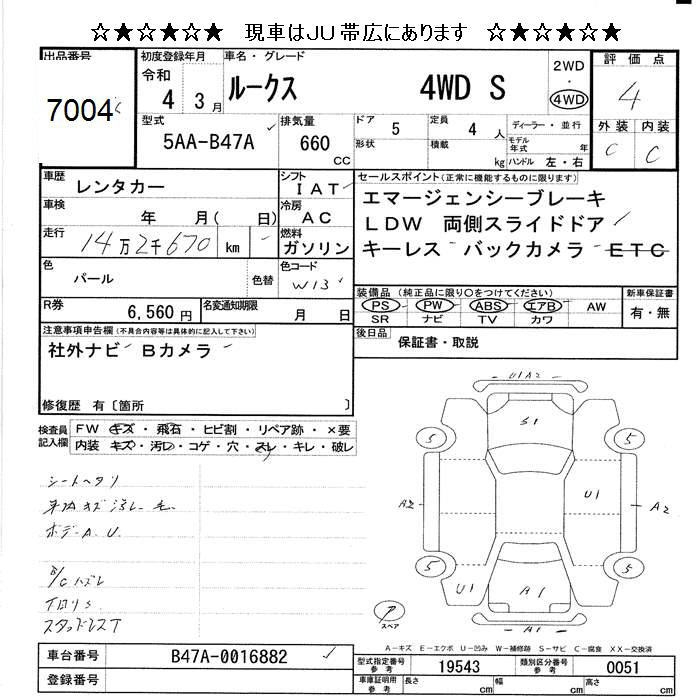 ☆★☆★☆★☆ 現車はJU帯広にあります ☆★☆★☆★☆
出品番号
7004
初度登録年月
令和
4 3 月
車名・グレード
ルークス 4WD S
2WD
・
4WD
評価点
4
外装 内装
C C
型式
5AA-B47A
排気量
660
CC
ドア
5
形状
定員
4 人
積載
kg
ディーラー・並行
モデル年式 年
ハンドル 左・右
車歴
レンタカー
車検
年 月( 日)
走行
14万2千670 km
シフト
IAT
冷房
AC
燃料
ガソリン
セールスポイント(正常に機能するものに限ります)
エマージェンシーブレーキ
LDW 両側スライドドア
キーレス バックカメラ ETC
色
パール
色替
色コード
W13
R券
6,560 円
名変通知期限
月 日
装備品(純正品に限り○をつけてください)
PS PW ABS エアB AW
SR ナビ TV カワ
新車保証書
有・無
後日品
保証書・取説
注意事項申告欄(不具合内容等は具体的に記入して下さい)
社外ナビ Bカメラ
修復歴 有〔箇所 〕
検査員記入欄
FW キズ・飛石・ヒビ割・リペア跡・×要
内装 キズ・汚レ・コゲ・穴・スレ・キレ・破レ
シートヘタリ
ボデーA.U.
B/Cハズレ
スタッドレスT
U1 A2
S1
5
5
A2
U1
A2
5
5
U1
A1
A1
スペア
A-キズ E-エクボ U-凹み W-補修跡 S-サビ C-腐食 XX-交換済
車台番号
B47A-0016882
登録番号
型式指定番号
参考
19543
類別区分番号
参考
0051
車庫証明用
参考
長さ cm
幅 cm
高さ cm